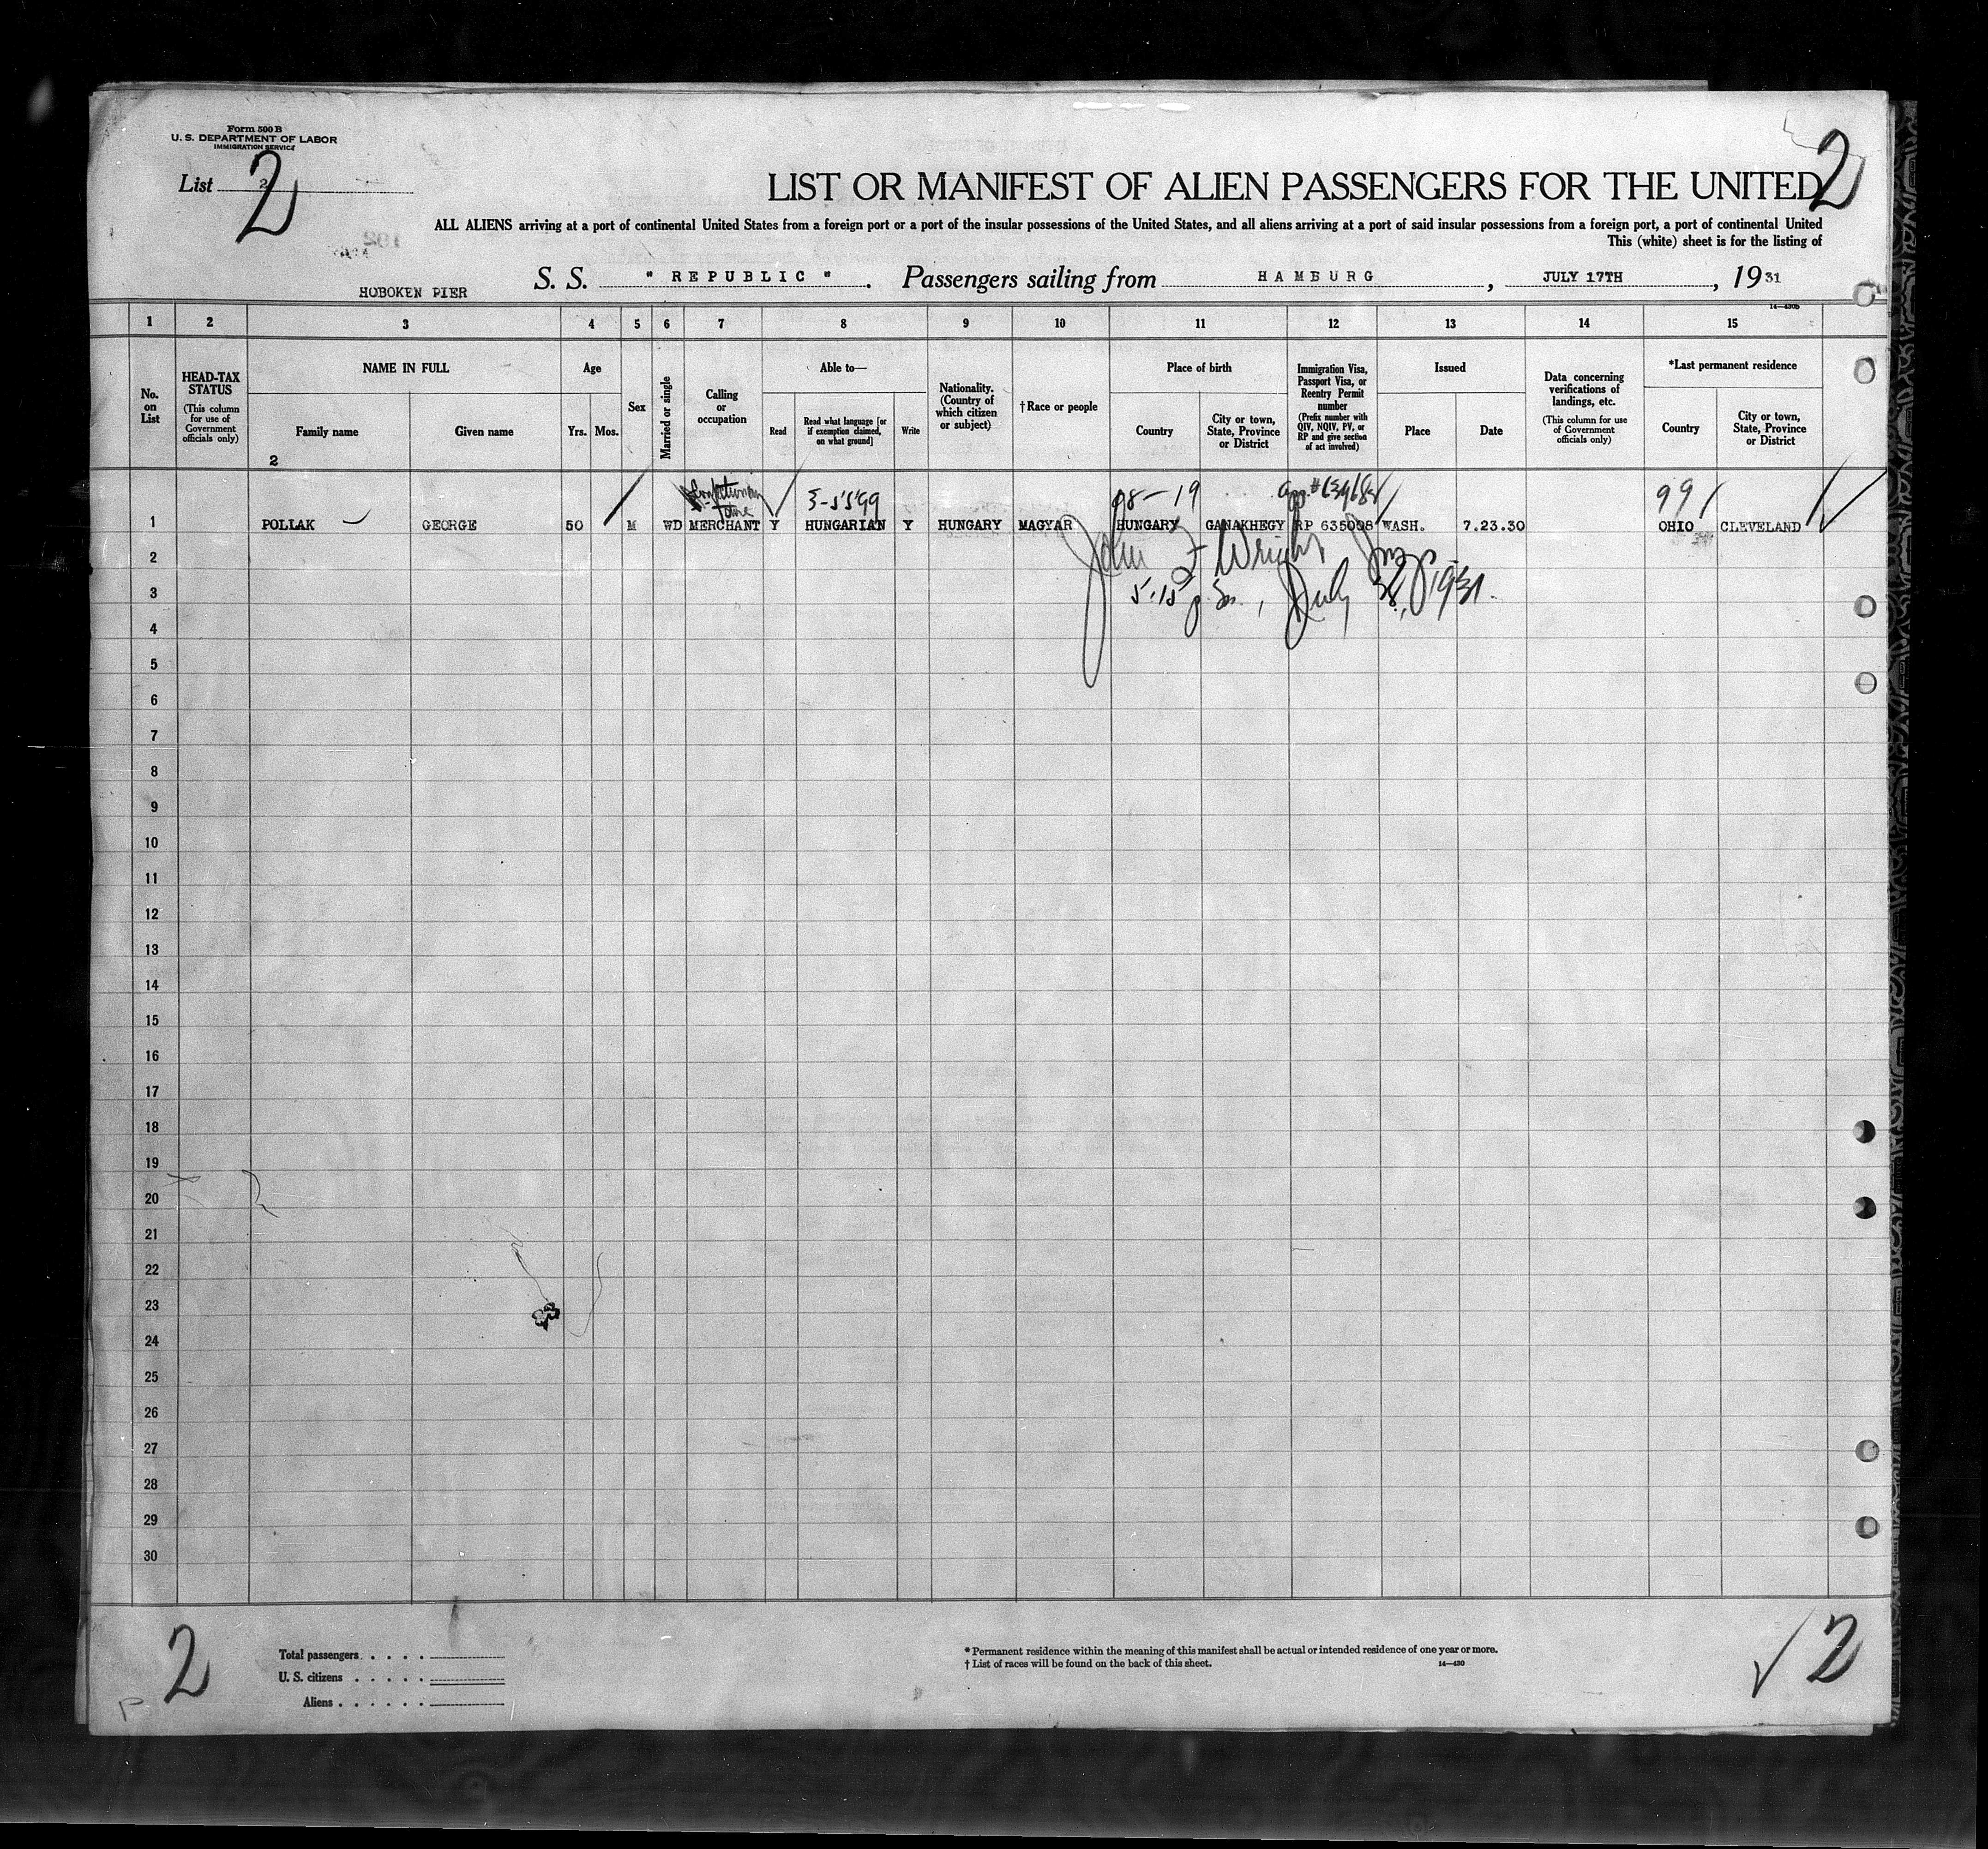 Form 500 B
U. S. DEPARTMENT OF LABOR
IMMIGRATION SERVICE
List 2
2
2
LIST OR MANIFEST OF ALIEN PASSENGERS FOR THE UNITED
ALL ALIENS arriving at a port of continental United States from a foreign port or a port of the insular possessions of the United States, and all aliens arriving at a port of said insular possessions from a foreign port, a port of continental United
This (white) sheet is for the listing of
HOBOKEN PIER
S. S. " REPUBLIC ". Passengers sailing from HAMBURG, JULY 17TH, 1931
14—430b
1 2 3 4 5 6 7 8 9 10 11 12 13 14 15
No. on List
HEAD-TAX STATUS
(This column for use of Government officials only)
NAME IN FULL
Family name
Given name
2
Age
Yrs. Mos.
Sex
Married or single
Calling or occupation
Able to—
Read
Read what language [or if exemption claimed, on what ground]
Write
Nationality. (Country of which citizen or subject)
† Race or people
Place of birth
Country
City or town, State, Province or District
Immigration Visa, Passport Visa, or Reentry Permit number
(Prefix number with QIV, NQIV, PV, or RP and give section of act involved)
Issued
Place
Date
Data concerning verifications of landings, etc.
(This column for use of Government officials only)
*Last permanent residence
Country
City or town, State, Province or District
3-5599 98-19 99
1 POLLAK GEORGE 50 M WD MERCHANT Y HUNGARIAN Y HUNGARY MAGYAR HUNGARY GANAKHEGY RP 635008 WASH. 7.23.30 OHIO CLEVELAND
John F Wright Insp.
July 1931.
2
3
4
5
6
7
8
9
10
11
12
13
14
15
16
17
18
19
20
21
22
23
24
25
26
27
28
29
30
2
Total passengers . . . . .
U. S. citizens . . . . .
Aliens . . . . . .
* Permanent residence within the meaning of this manifest shall be actual or intended residence of one year or more.
† List of races will be found on the back of this sheet. 14—430
2